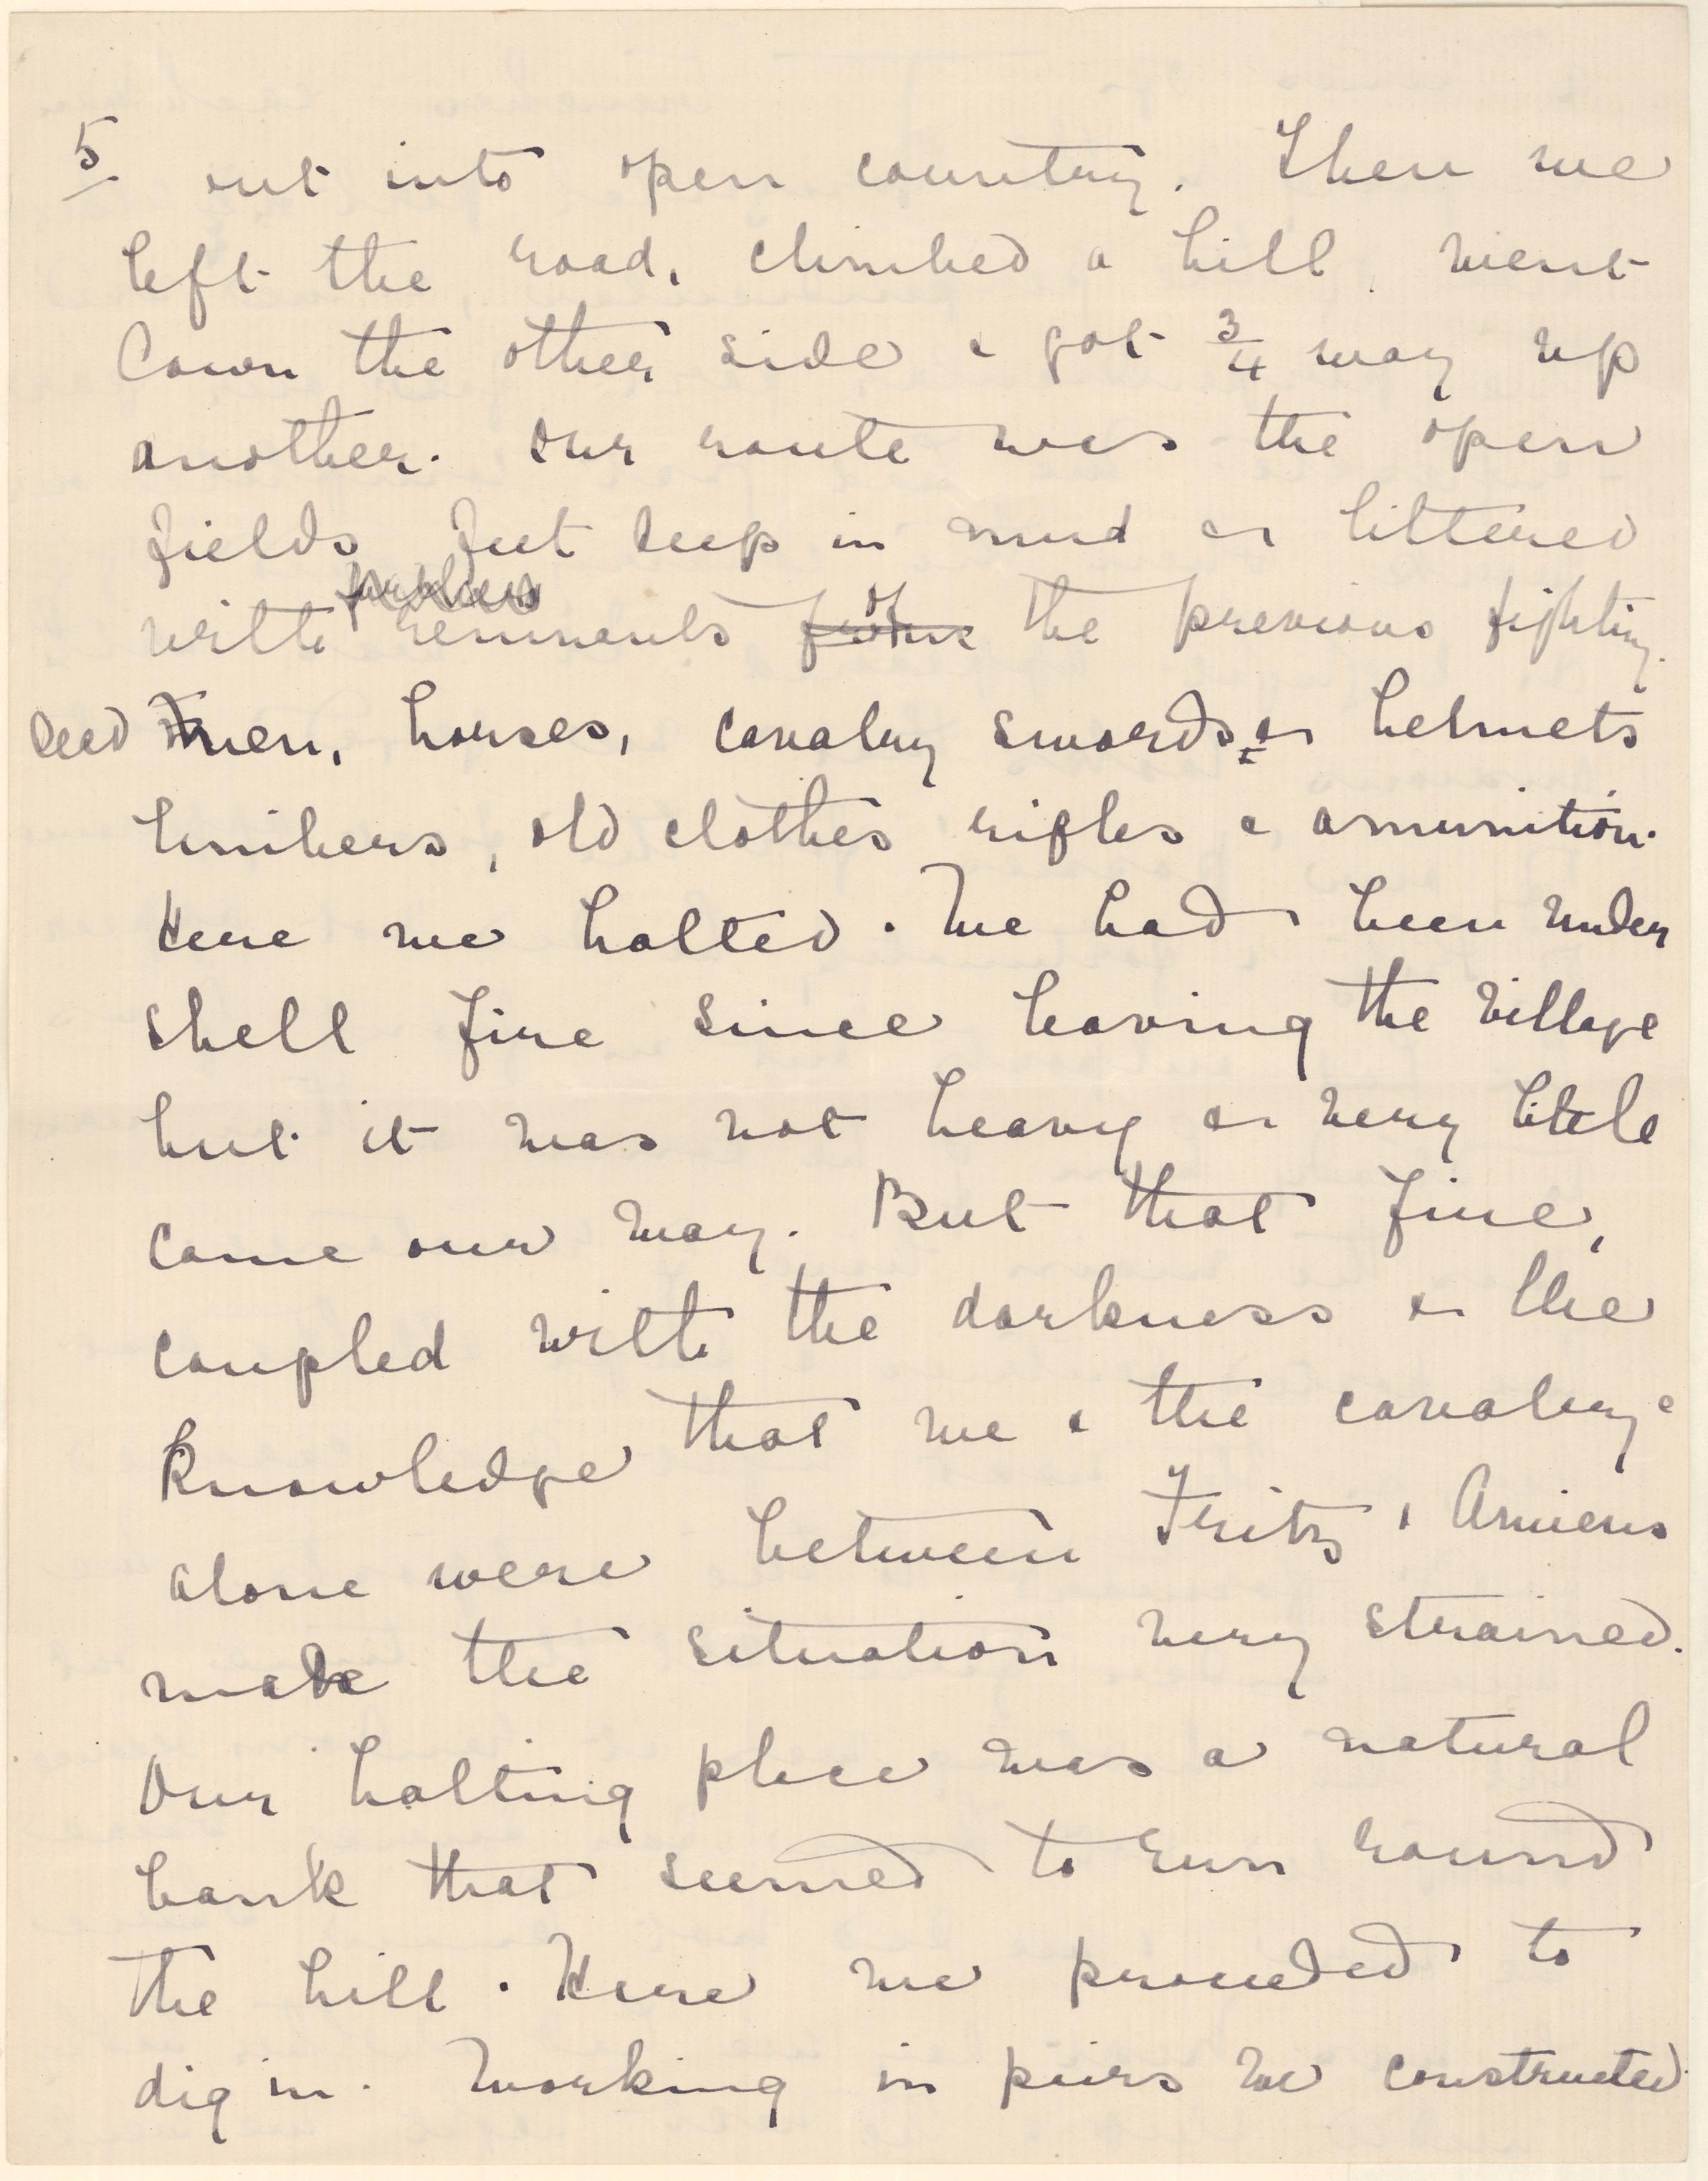 5 out into open country. Then we
left the road, climbed a hill, went
down the other side & got 3/4 way up
another. Our route was the open
fields feet deep in mud & littered
with remnents of the previous fighting.
dead men, horses, cavalry swords & helmets
limbers, old clothes rifles & amunition.
Here we halted. We had been under
shell fire since leaving the village
but it was not heavy & very little
came our way. But that fire,
coupled with the darkness & the
knowledge that we & the cavalry
alone were between Fritz & Amiens
made the situation very strained.
Our halting place was a natural
bank that seemed to run round
the hill. Here we proceeded to
dig in. Working in pairs we constructed